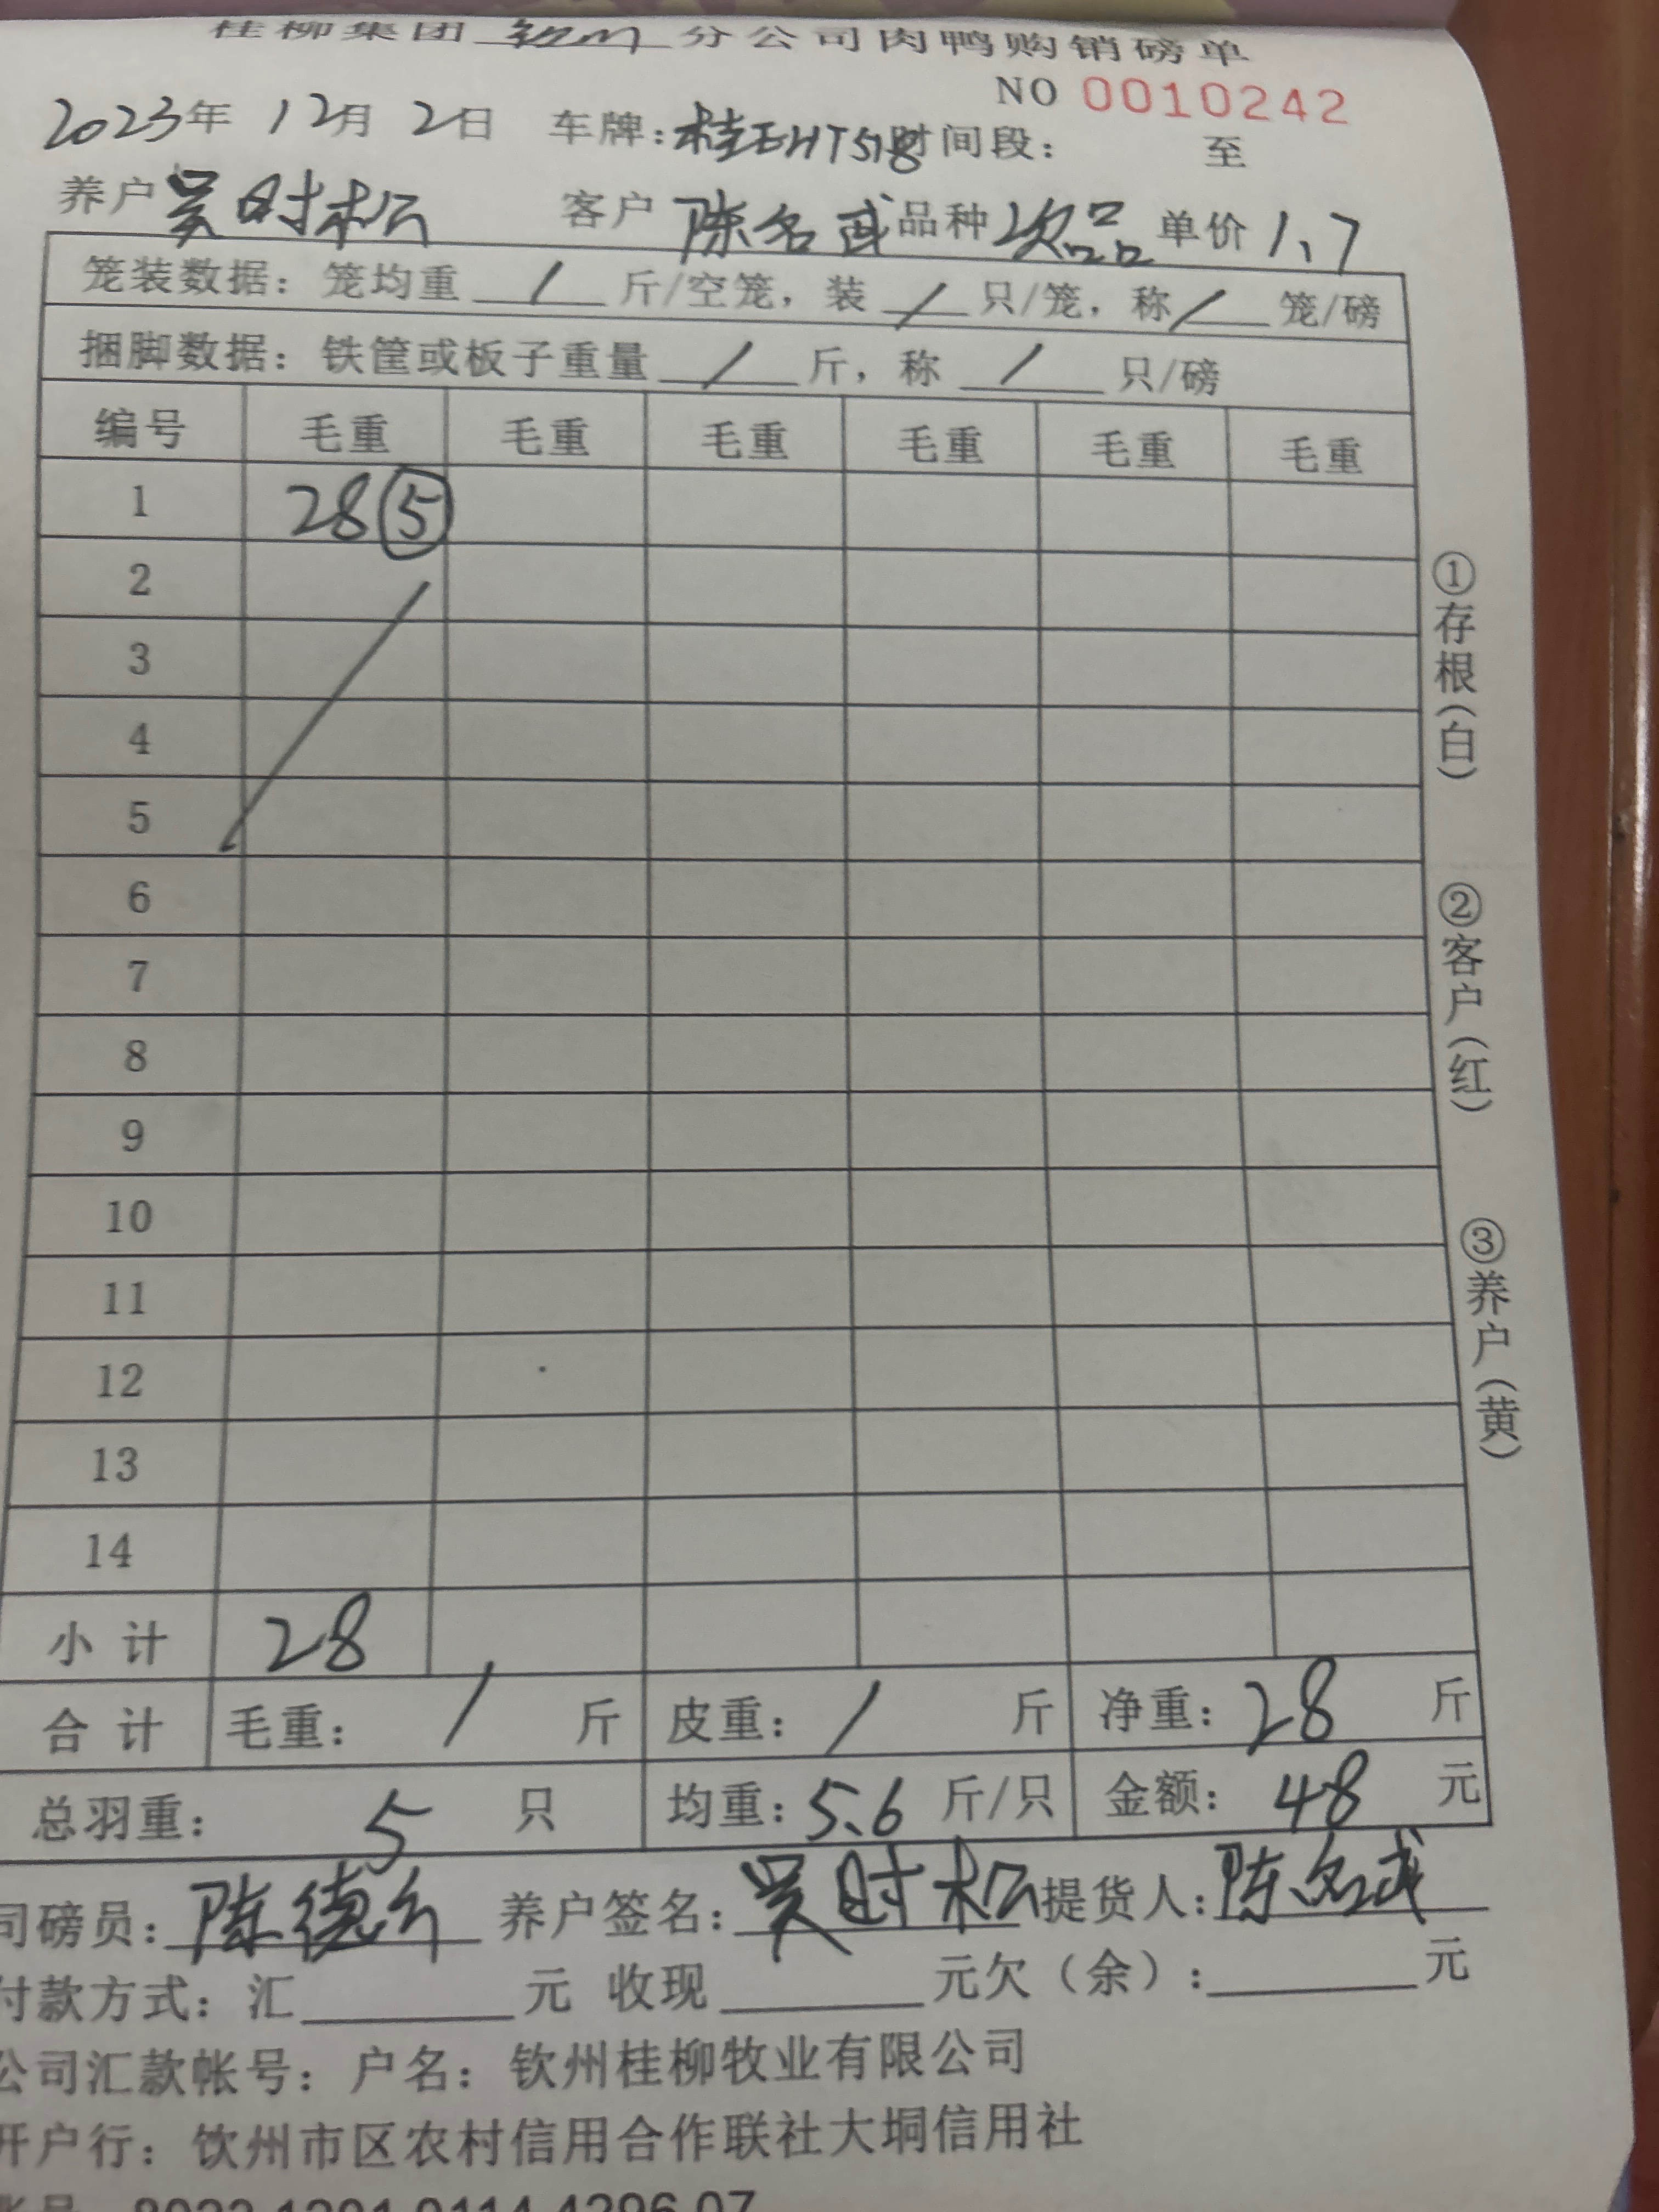 桂柳集团 钦州 分公司肉鸭购销磅单
NO 0010242
2023年 12月 2日 车牌：桂EHT518 时间段： 至
养户 吴时松 客户 陈名武 品种 次品 单价 1、7
笼装数据：笼均重 / 斤/空笼，装 / 只/笼，称 / 笼/磅
捆脚数据：铁筐或板子重量 / 斤，称 / 只/磅
编号 毛重 毛重 毛重 毛重 毛重 毛重
1 28⑤
2
3
4
5
6
7
8
9
10
11
12
13
14
小计 28
合计 毛重： / 斤 皮重： / 斤 净重：28 斤
总羽重： 5 只 均重：5.6 斤/只 金额： 48 元
司磅员：陈德 养户签名：吴时松 提货人：陈名武
付款方式：汇 元 收现 元欠（余）： 元
公司汇款帐号：户名：钦州桂柳牧业有限公司
开户行：钦州市区农村信用合作联社大垌信用社
①存根（白）
②客户（红）
③养户（黄）